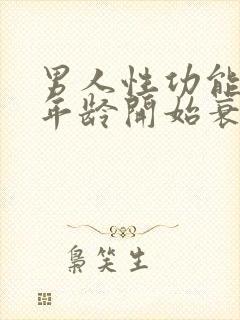 男人性功能
年龄開始衰
梟笑生